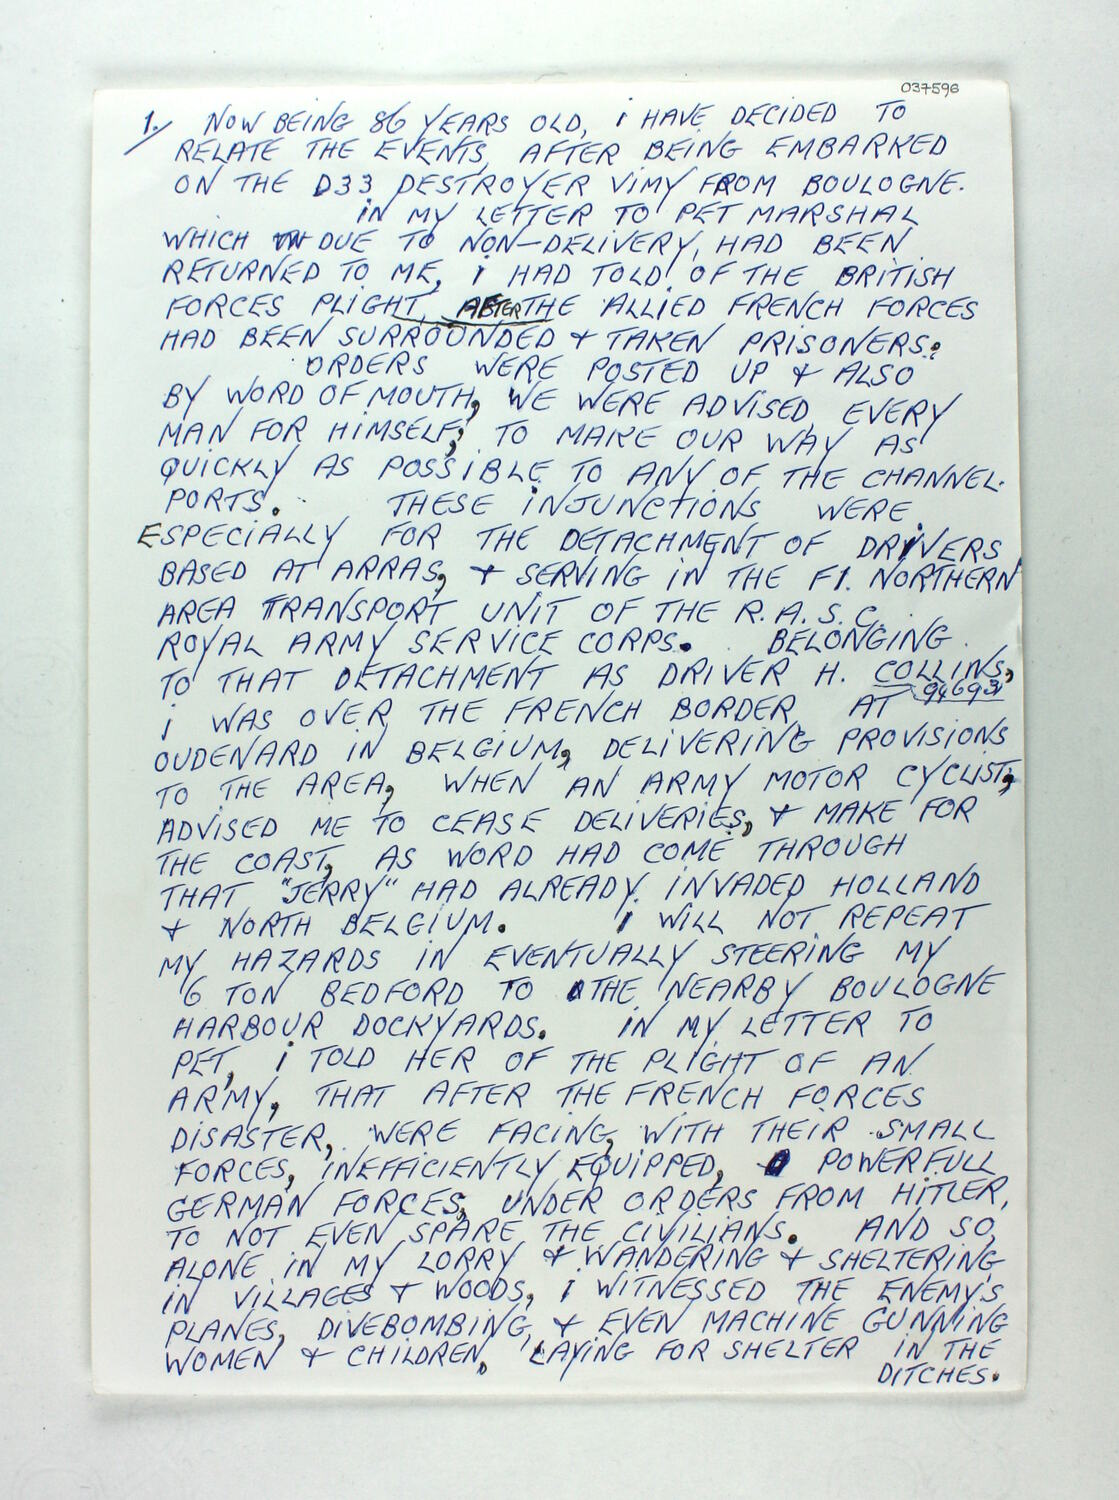 037596
1. NOW BEING 86 YEARS OLD, i HAVE DECIDED TO
RELATE THE EVENTS, AFTER BEING EMBARKED
ON THE D33 DESTROYER VIMY FROM BOULOGNE.
IN MY LETTER TO PET MARSHAL
WHICH DUE TO NON-DELIVERY, HAD BEEN
RETURNED TO ME, i HAD TOLD OF THE BRITISH
FORCES PLIGHT, AFTER THE ALLIED FRENCH FORCES
HAD BEEN SURROUNDED & TAKEN PRISONERS.
ORDERS WERE POSTED UP & ALSO
BY WORD OF MOUTH, WE WERE ADVISED, EVERY
MAN FOR HIMSELF, TO MAKE OUR WAY AS
QUICKLY AS POSSIBLE TO ANY OF THE CHANNEL
PORTS. THESE INJUNCTIONS WERE
ESPECIALLY FOR THE DETACHMENT OF DRIVERS
BASED AT ARRAS, & SERVING IN THE F1. NORTHERN
AREA TRANSPORT UNIT OF THE R.A.S.C.
ROYAL ARMY SERVICE CORPS. BELONGING
TO THAT DETACHMENT AS DRIVER H. COLLINS,
i WAS OVER THE FRENCH BORDER, AT
OUDENARD IN BELGIUM, DELIVERING PROVISIONS
TO THE AREA, WHEN AN ARMY MOTOR CYCLIST,
ADVISED ME TO CEASE DELIVERIES, & MAKE FOR
THE COAST, AS WORD HAD COME THROUGH
THAT "JERRY" HAD ALREADY INVADED HOLLAND
& NORTH BELGIUM. I WILL NOT REPEAT
MY HAZARDS IN EVENTUALLY STEERING MY
6 TON BEDFORD TO THE NEARBY BOULOGNE
HARBOUR DOCKYARDS. IN MY LETTER TO
PET, i TOLD HER OF THE PLIGHT OF AN
ARMY, THAT AFTER THE FRENCH FORCES
DISASTER, WERE FACING, WITH THEIR SMALL
FORCES, INEFFICIENTLY EQUIPPED, A POWERFULL
GERMAN FORCES, UNDER ORDERS FROM HITLER,
TO NOT EVEN SPARE THE CIVILIANS. AND SO,
ALONE IN MY LORRY & WANDERING & SHELTERING
IN VILLAGES & WOODS, i WITNESSED THE ENEMY'S
PLANES, DIVEBOMBING, & EVEN MACHINE GUNNING
WOMEN & CHILDREN, LAYING FOR SHELTER IN THE
DITCHES.